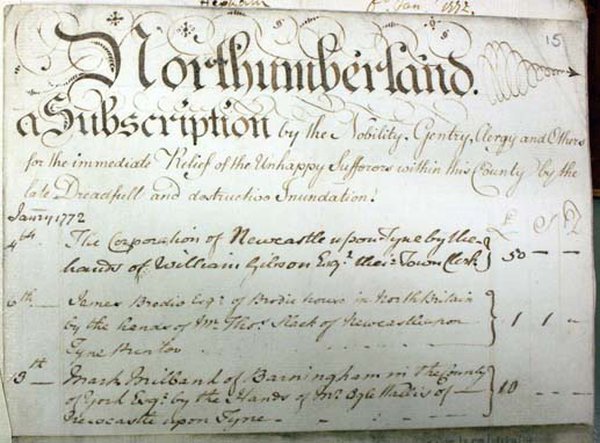 Hexham Jan: 1772.
15
Northumberland.
a Subscription by the Nobility, Gentry, Clergy and Others
for the immediate Relief of the Unhappy Sufferors within this County by the
late Dreadfull and destructive Inundation!
Janry 1772 £ S D
4th The Corporation of Newcastle upon Tyne by the
hands of William Gibson Esqr. their Town Clerk } 50 — —
6th — James Brodie Esqr. of Brodie house in North Britain
by the hands of Mr. Thos. Slack of Newcastle upon } 1 1 —
Tyne Printer
13th — Mark Milbank of Barningham in the County
of York Esqr. by the Hands of Mr. Ogle Wallis of — } 10 - -
Newcastle upon Tyne —